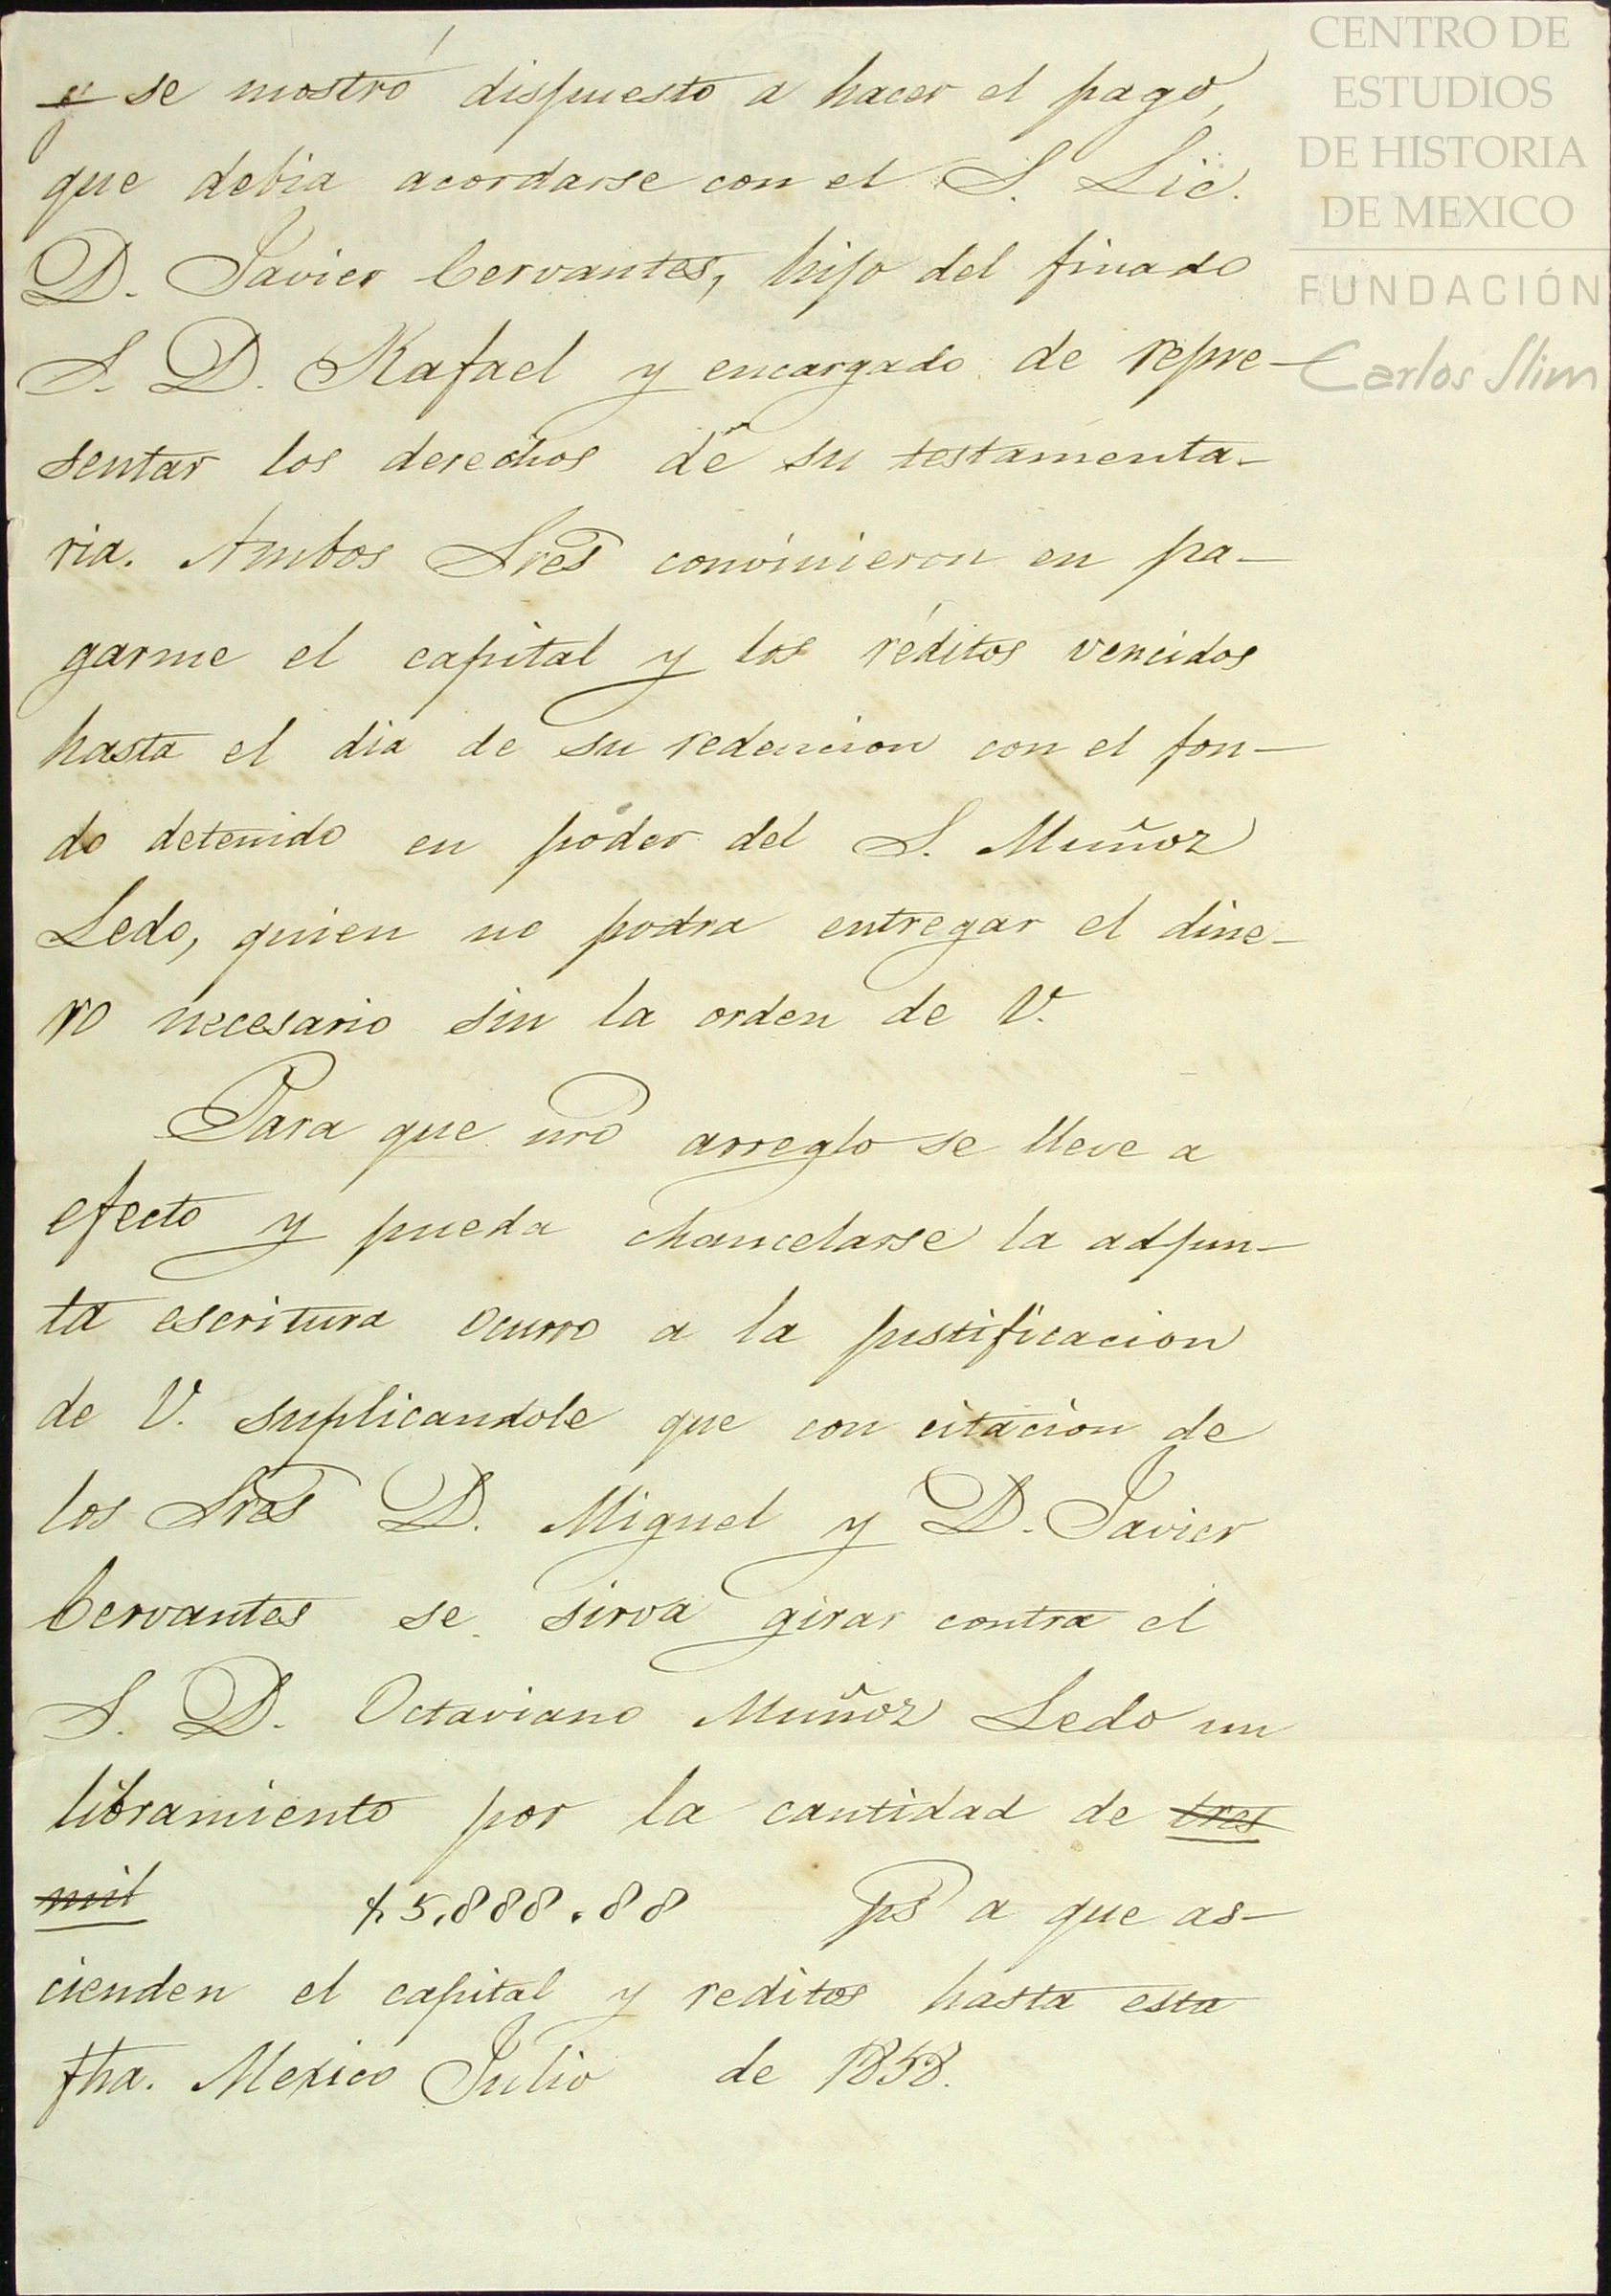 y se mostró dispuesto a hacer el pago,
que debia acordarse con el S. Lic.
D. Javier Cervantes, hijo del finado
S. D. Rafael y encargado de repre-
sentar los derechos de su testamenta-
ria. Ambos Sres convinieron en pa-
garme el capital y los réditos vencidos
hasta el dia de su redencion con el fon-
do detenido en poder del S. Muñoz
Ledo, quien no podra entregar el dine-
ro necesario sin la orden de V.
Para que nro arreglo se lleve a
efecto y pueda chancelarse la adjun-
ta escritura ocurro a la justificacion
de V. suplicandole que con citacion de
los Sres D. Miguel y D. Javier
Cervantes se sirva girar contra el
S. D. Octaviano Muñoz Ledo un
libramiento por la cantidad de tres
mil $5,888.88 ps a que as-
cienden el capital y reditos hasta esta
fha. Mexico Julio de 1858.
CENTRO DE
ESTUDIOS
DE HISTORIA
DE MEXICO
FUNDACIÓN
Carlos Slim